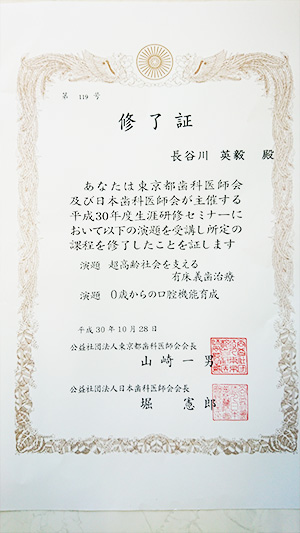 第 119 号
修了証
長谷川 英毅 殿
あなたは東京都歯科医師会
及び日本歯科医師会が主催する
平成30年度生涯研修セミナーに
おいて以下の演題を受講し所定の
課程を修了したことを証します
演題 超高齢社会を支える
有床義歯治療
演題 0歳からの口腔機能育成
平成30年10月28日
公益社団法人東京都歯科医師会会長
山崎一男
公益社団法人日本歯科医師会会長
堀憲郎